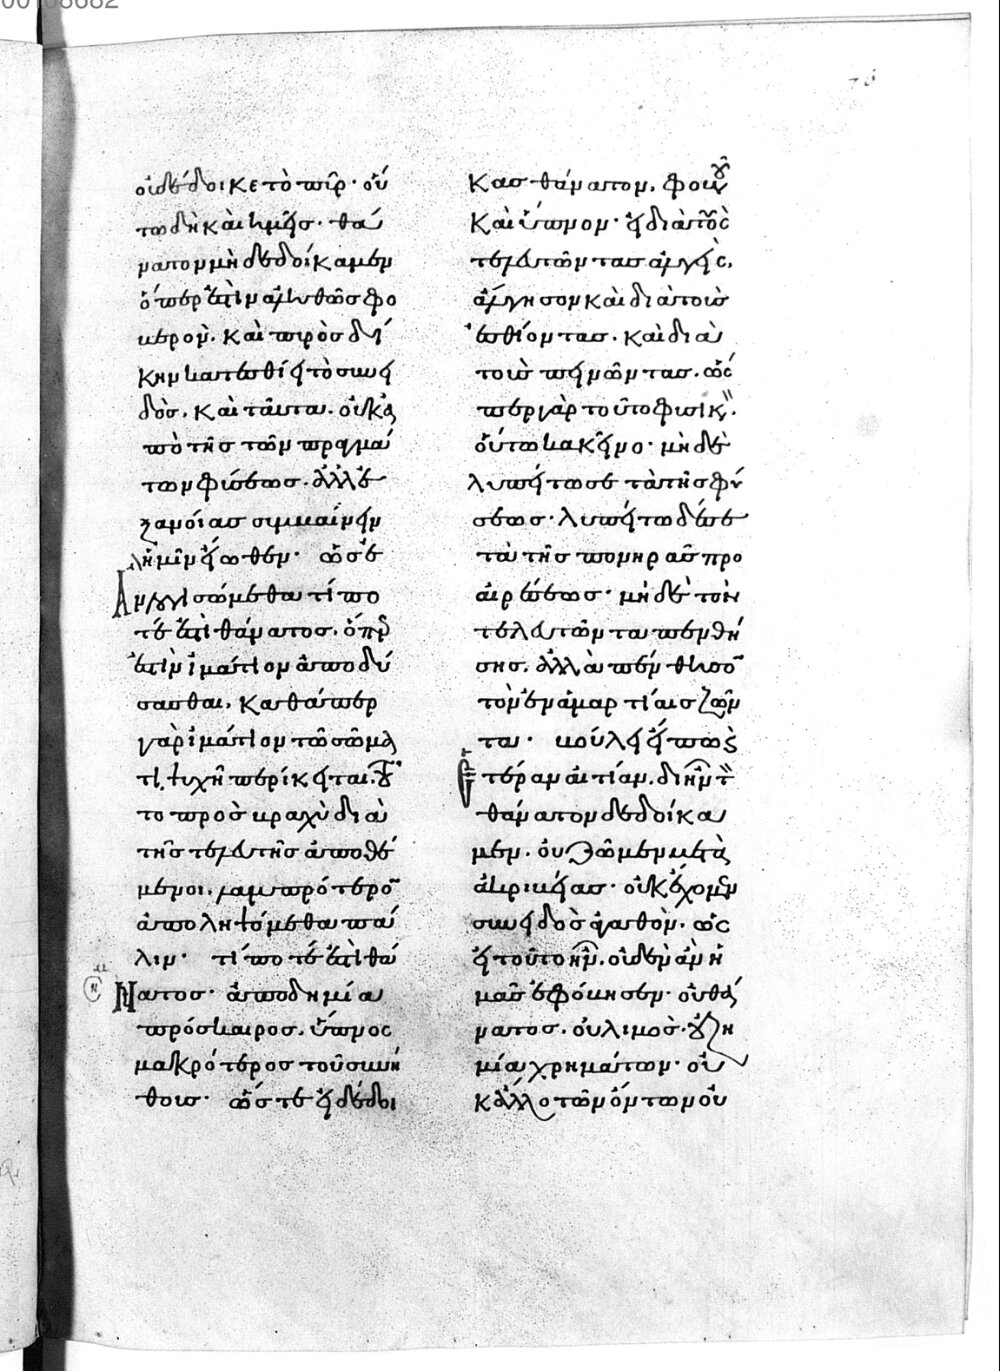 οὐ δέδοικε τὸ πῦρ· οὕ
τω δὴ καὶ ἡμεῖς· θά
νατον μὴ δεδοίκαμεν
ὅπερ ἐστὶν ἀληθῶς φο
βερὸν. καὶ πρὸς δί
κην κατεσθίει τὸ συνει
δὸς. καὶ ταῦτα. οὐκ ἀ
πὸ τῆς τῶν πραγμά
των φύσεως. ἀλλ' ἐ
ξ ἀνοίας συμβαίνειν
ἡμῖν εἴωθεν· ὥστε
Ἀναλογισώμεθα τί πο
τέ ἐστὶ θάνατος. ὅπερ
ἐστὶν ἱμάτιον ἀποδύ
σασθαι. καθάπερ
γὰρ ἱμάτιον τὸ σῶμα
τῇ ψυχῇ περίκειται. τοῦ
το πρὸς βραχὺ διὰ
τῆς τελευτῆς ἀποθέ
μενοι. λαμπρότερον
ἀποληψόμεθα πά
λιν· τί ποτέ ἐστὶ θά
Νατος· ἀποδημία
πρόσκαιρος. ὕπνος
μακρότερος τοῦ συνή
θους· ὥστε εἰ δέδοι
κας θάνατον. φοβοῦ
καὶ ὕπνον· εἰ διὰ τοὺς
τελευτῶντας ἀλγεῖς.
ἄλγησον καὶ διὰ τοὺς
ἐσθίοντας. καὶ διὰ
τοὺς πίνοντας. ὥς
περ γὰρ τοῦτο φυσικὸν.
οὕτω κἀκεῖνο· μὴ δὲ
λυπείτω σε τὰ τῆς φύ
σεως· λυπείτω δέ σε
τὰ τῆς πονηρᾶς προ
αιρέσεως· μὴ δὲ τὸν
τελευτῶντα πενθή
σης. ἀλλὰ πένθησον
τὸν ἐν ἁμαρτίαις ζῶν
τα· βούλει εἴπω ἑ
τέραν αἰτίαν. δι' ἣν τὸν
θάνατον δεδοίκα
μεν. οὐ ζῶμεν μετὰ
ἀκριβείας· οὐκ ἔχομεν
συνειδὸς ἀγαθὸν. ὡς
εἰ τοῦτο ἦν. οὐδὲν ἂν ἡ
μᾶς ἐφόβησεν· οὐ θά
νατος. οὐ λιμὸς· οὐ ζη
μία χρημάτων· οὐ
κ ἄλλο τῶν ὄντων οὐ